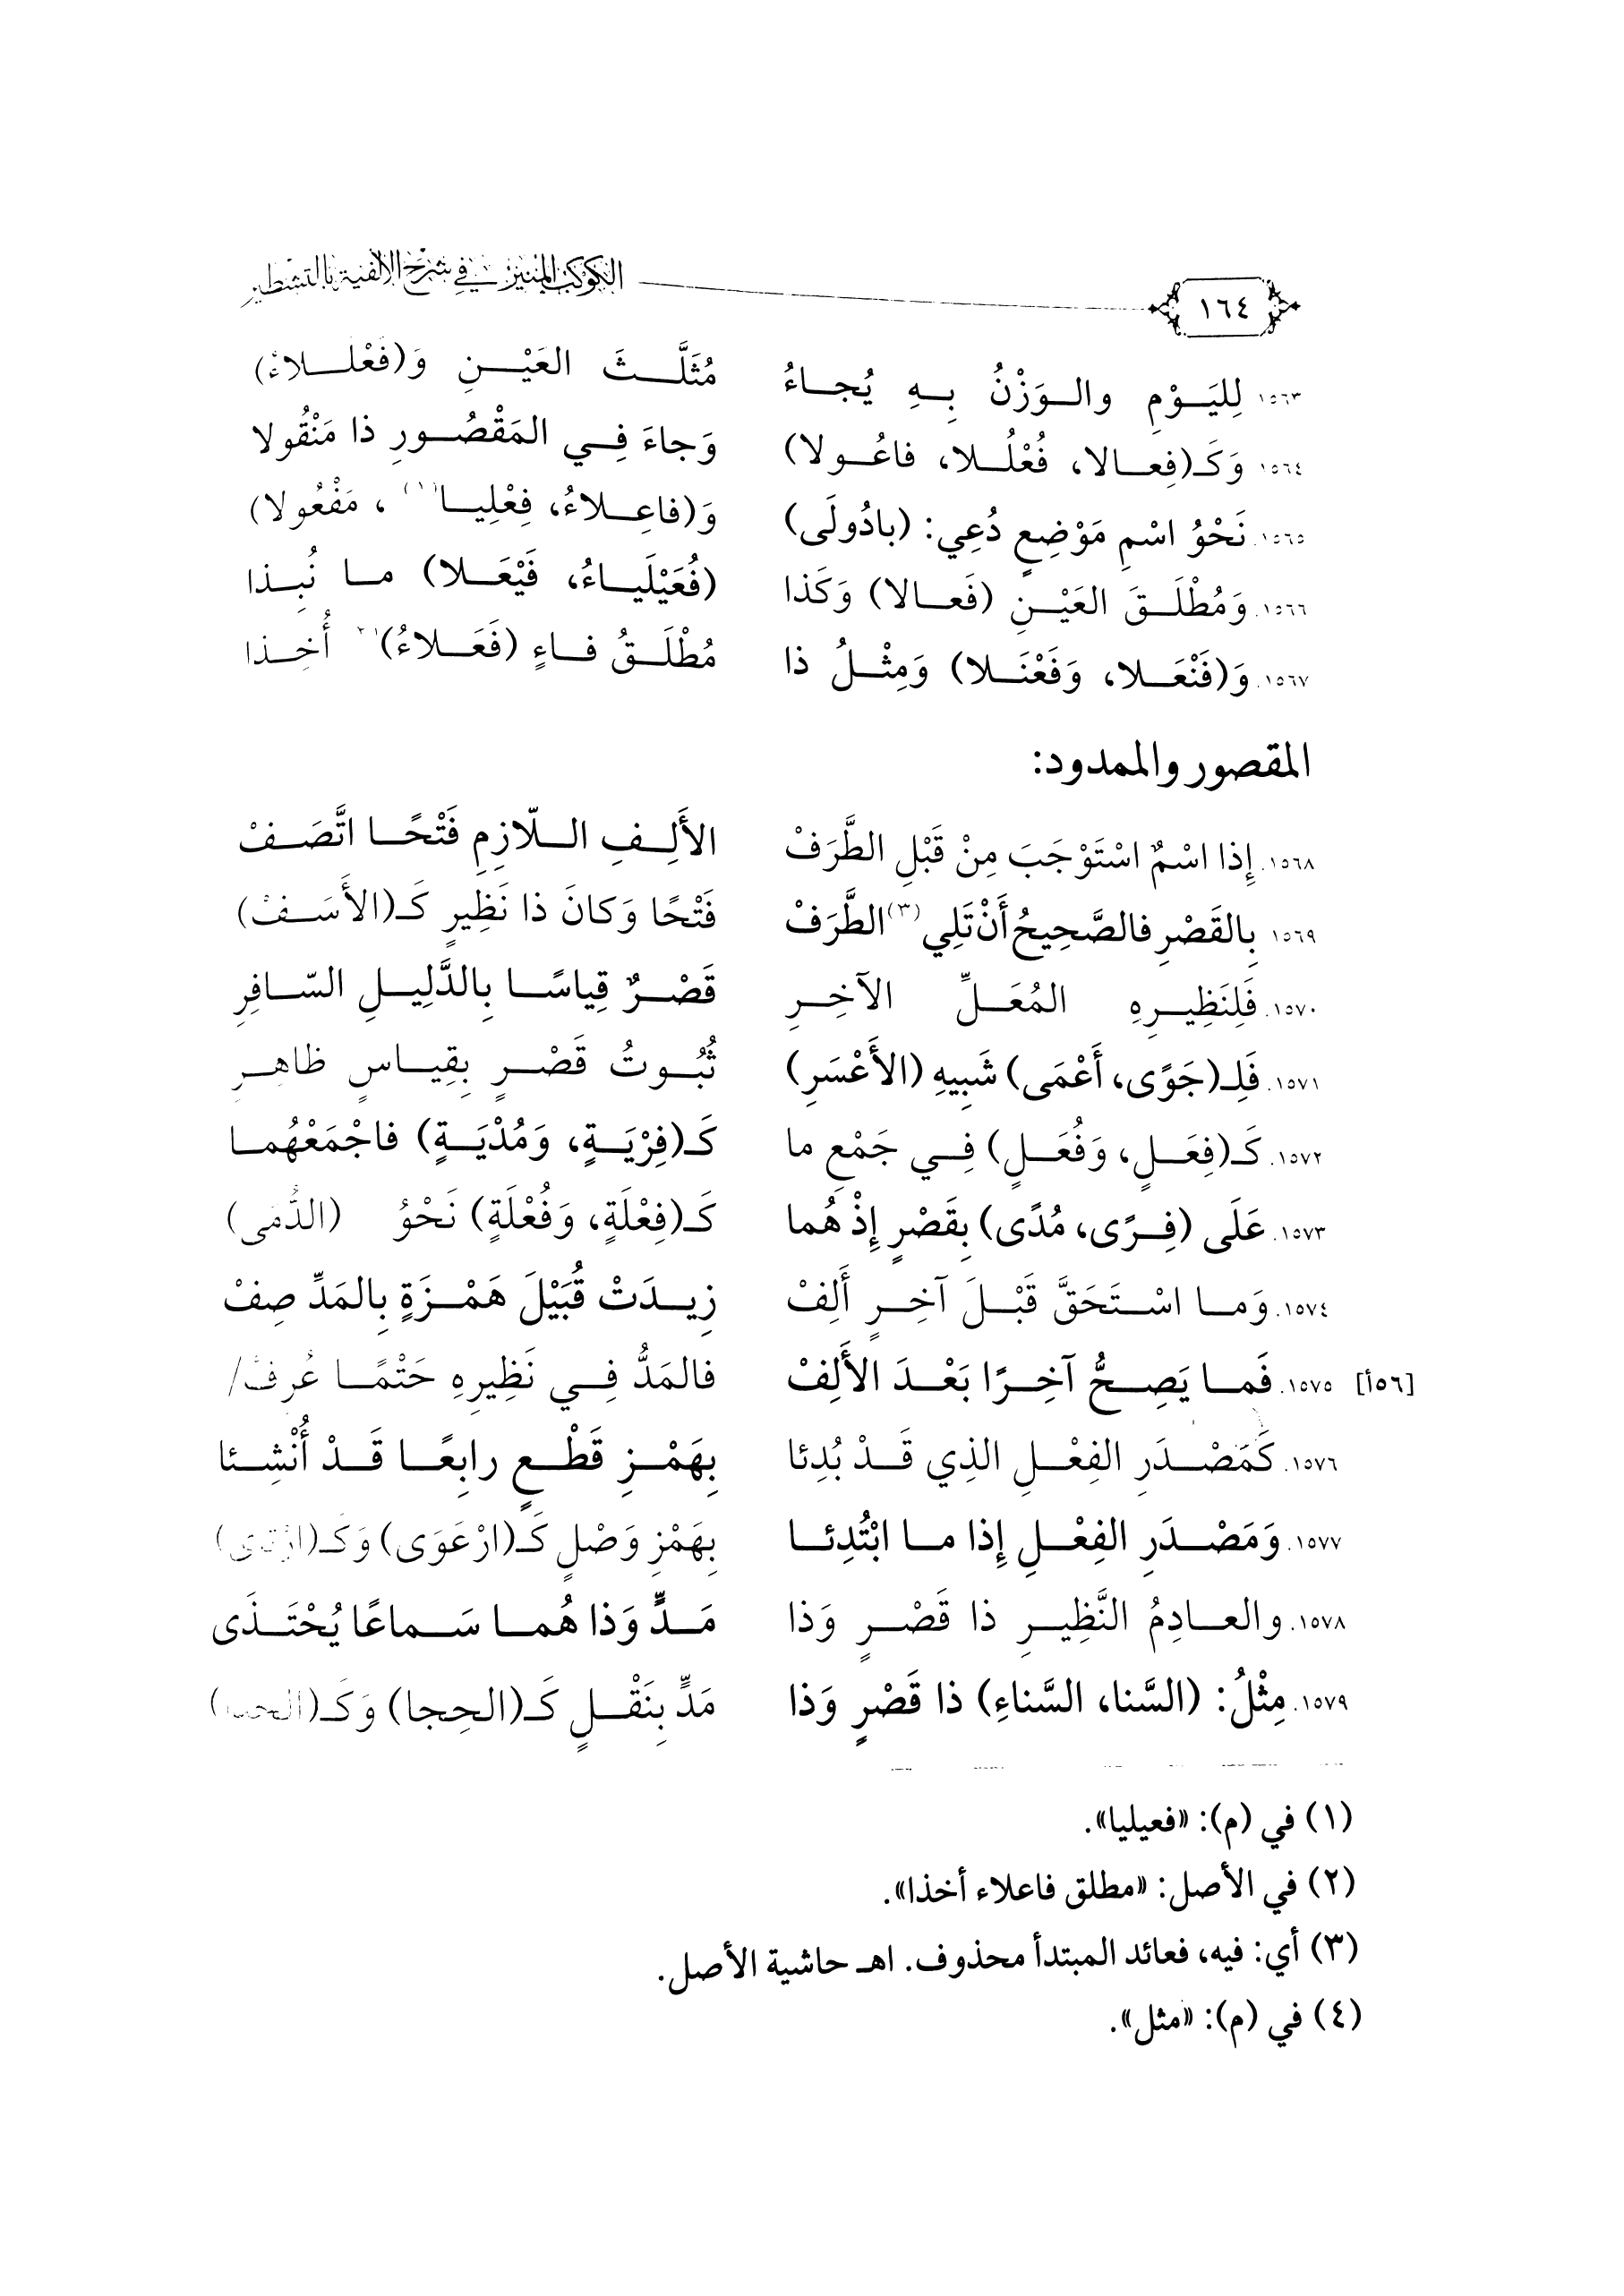 ١٦٤ الكوكب المنير في شرح الألفية بالتشطير
١٥٦٣. لِليَوْمِ والوَزْنُ بِهِ يُجاءُ مُثَلَّثَ العَيْنِ وَ(فَعْلَلاءُ)
١٥٦٤. وَكَـ(فِعالا، فُعْلُلا، فاعُولا) وَجاءَ فِي المَقْصُورِ ذا مَنْقُولا
١٥٦٥. نَحْوُ اسْمِ مَوْضِعٍ دُعِي: (بادُولَى) وَ(فاعِلاءُ، فِعْلِيا(١)، مَفْعُولا)
١٥٦٦. وَمُطْلَقَ العَيْنِ (فَعالا) وَكَذا (فُعَيْلَياءُ، فَيْعَلا) ما نُبِذا
١٥٦٧. وَ(فَنْعَلا، وَفَعْنَلا) وَمِثْلُ ذا مُطْلَقُ فاءٍ (فَعَلاءُ)(٢) أُخِذا
المقصور والممدود:
١٥٦٨. إِذا اسْمٌ اسْتَوْجَبَ مِنْ قَبْلِ الطَّرَفْ الأَلِفِ اللّازِمِ فَتْحًا اتَّصَفْ
١٥٦٩. بِالقَصْرِ فالصَّحِيحُ أَنْ تَلِي(٣) الطَّرَفْ فَتْحًا وَكانَ ذا نَظِيرٍ كَـ(الأَسَفْ)
١٥٧٠. فَلِنَظِيرِهِ المُعَلِّ الآخِرِ قَصْرٌ قِياسًا بِالدَّلِيلِ السّافِرِ
١٥٧١. فَلِـ(جَوًى، أَعْمَى) شَبِيهِ (الأَعْسَرِ) ثُبُوتُ قَصْرٍ بِقِياسٍ ظاهِرِ
١٥٧٢. كَـ(فِعَلٍ، وَفُعَلٍ) فِي جَمْعِ ما كَـ(فِرْيَةٍ، وَمُدْيَةٍ) فاجْمَعْهُما
١٥٧٣. عَلَى (فِرًى، مُدًى) بِقَصْرٍ إِذْ هُما كَـ(فِعْلَةٍ، وَفُعْلَةٍ) نَحْوُ (الدُّمَى)
١٥٧٤. وَما اسْتَحَقَّ قَبْلَ آخِرٍ أَلِفْ زِيدَتْ قُبَيْلَ هَمْزَةٍ بِالمَدِّ صِفْ
[١٥٦أ] ١٥٧٥. فَما يَصِحُّ آخِرًا بَعْدَ الأَلِفْ فالمَدُّ فِي نَظِيرِهِ حَتْمًا عُرِفْ/
١٥٧٦. كَمَصْدَرِ الفِعْلِ الذِي قَدْ بُدِئا بِهَمْزِ قَطْعٍ رابِعًا قَدْ أُنْشِئا
١٥٧٧. وَمَصْدَرِ الفِعْلِ إِذا ما ابْتُدِئا بِهَمْزِ وَصْلٍ كَـ(ارْعَوَى) وَكَـ(ارْتَأَى)
١٥٧٨. والعادِمُ النَّظِيرِ ذا قَصْرٍ وَذا مَدٍّ وَذا هُما سَماعًا يُحْتَذَى
١٥٧٩. مِثْلُ: (السَّنا، السَّناءِ) ذا قَصْرٍ وَذا مَدٍّ بِنَقْلٍ كَـ(الحِجا) وَكَـ
(١) في (م): «فعيليا».
(٢) في الأصل: «مطلق فاعلاء أخذا».
(٣) أي: فيه، فعائد المبتدأ محذوف. اهـ حاشية الأصل.
(٤) في (م): «مثل».